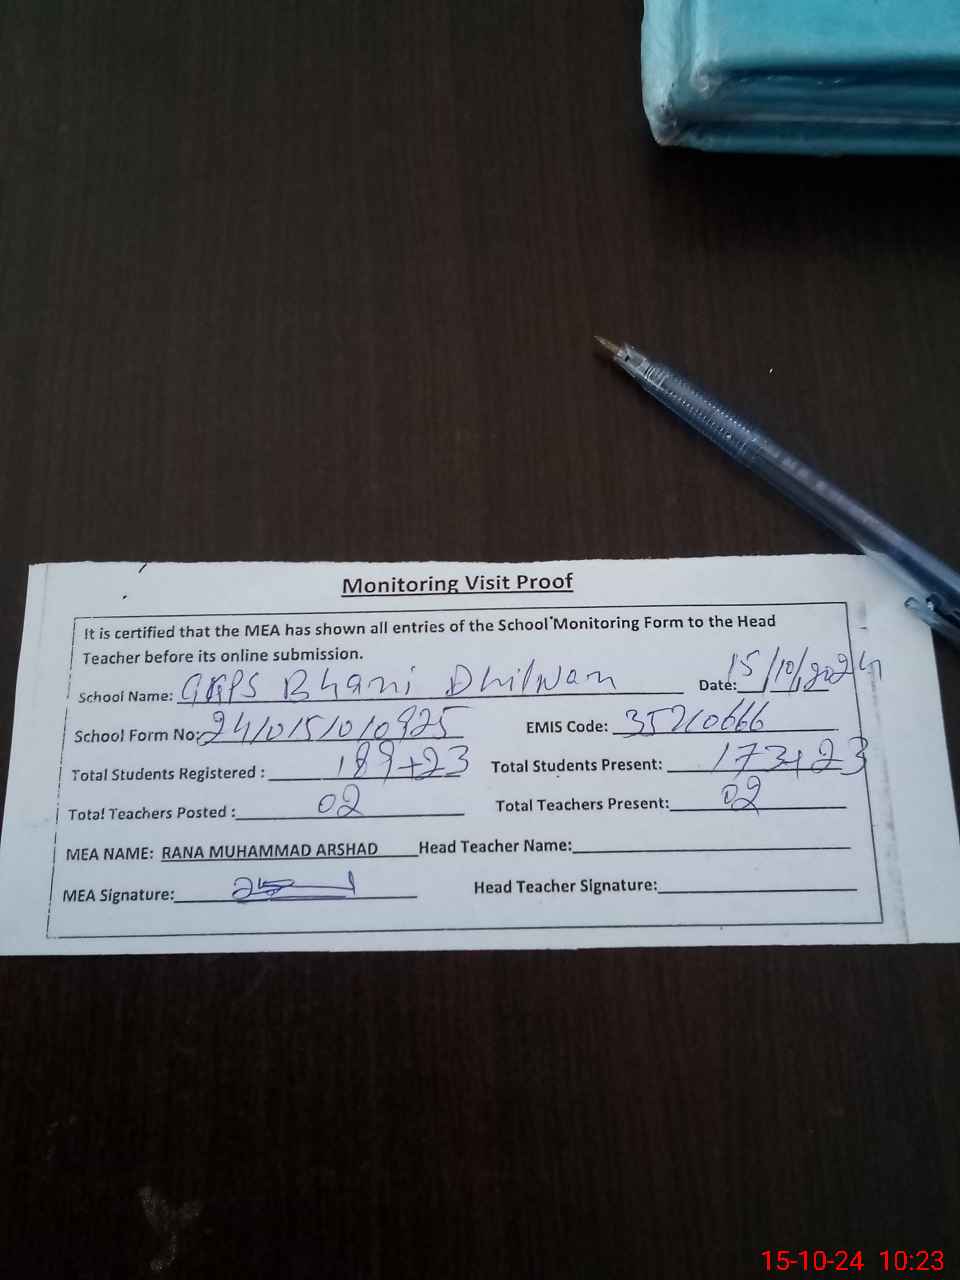 Monitoring Visit Proof
It is certified that the MEA has shown all entries of the School Monitoring Form to the Head
Teacher before its online submission.
School Name: GGPS Bhani Dhilwan Date: 15/10/2024
School Form No: 2410151010925 EMIS Code: 35210666
Total Students Registered : 189+23 Total Students Present: 173+23
Total Teachers Posted : 02 Total Teachers Present: 02
MEA NAME: RANA MUHAMMAD ARSHAD Head Teacher Name:
MEA Signature: Head Teacher Signature:
15-10-24 10:23